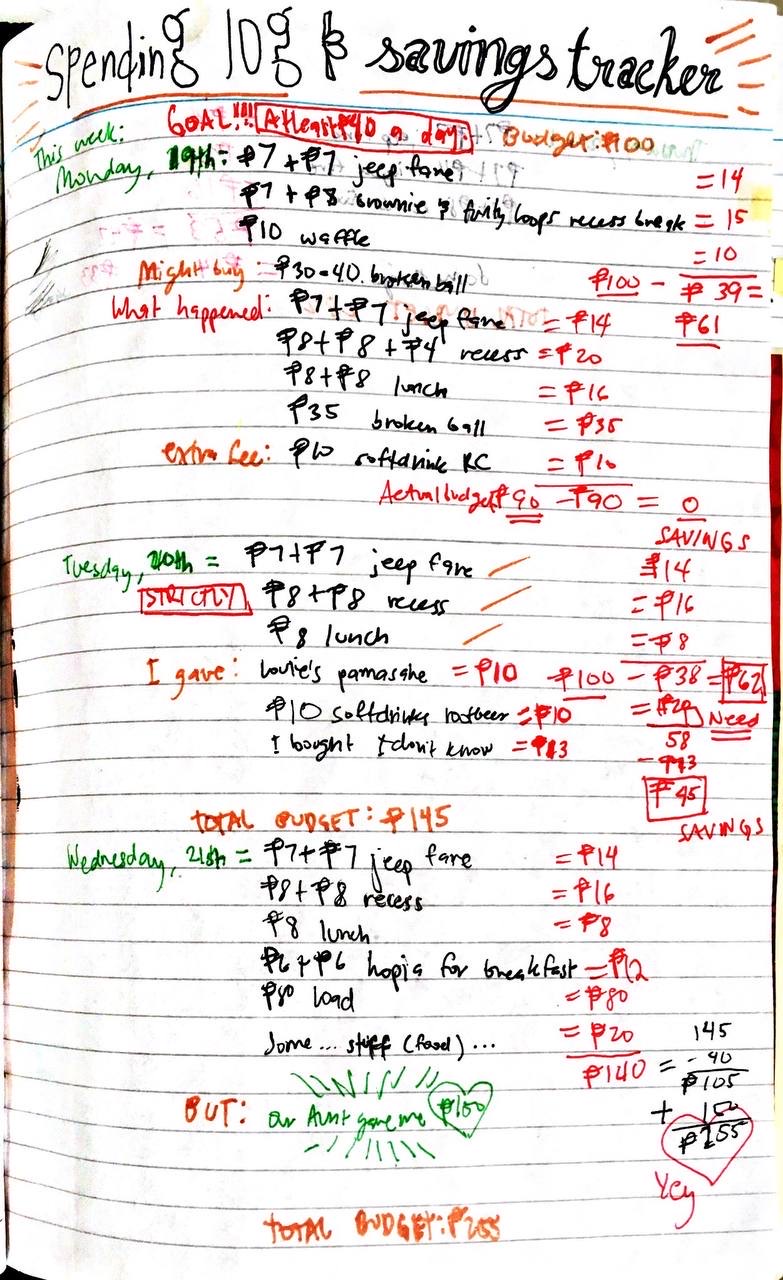 Spending log & savings tracker
GOAL!!! At least ₱40 a day! Budget: ₱100
This week:
Monday, 19th: ₱7 + ₱7 jeep fare = 14
₱7 + ₱8 brownie & fruity loops recess break = 15
₱10 waffle = 10
Might buy = ₱30-40. broken ball ₱100 - ₱39 =
What happened: ₱7 + ₱7 jeep fare = ₱14 ₱61
₱8 + ₱8 + ₱4 recess = ₱20
₱8 + ₱8 lunch = ₱16
₱35 broken ball = ₱35
extra fee: ₱10 softdrink RC = ₱10
Actual budget ₱90 - ₱90 = 0
SAVINGS
Tuesday, 20th = ₱7 + ₱7 jeep fare ₱14
STRICTLY ₱8 + ₱8 recess = ₱16
₱8 lunch = ₱8
I gave: Louie's pamasahe = ₱10 ₱100 - ₱38 = ₱62
₱10 softdrinks rootbeer = ₱10 = ₱20 Need
I bought I don't know = ₱13 58
- ₱13
₱45
SAVINGS
TOTAL BUDGET: ₱145
Wednesday, 21th = ₱7 + ₱7 jeep fare = ₱14
₱8 + ₱8 recess = ₱16
₱8 lunch = ₱8
₱6 + ₱6 hopia for breakfast = ₱12
₱80 load = ₱80
Some... stuff (food)... = ₱20 145
₱140 = - 40
₱105
BUT: our Aunt gave me ₱150 + 150
₱255
Yey
TOTAL BUDGET: ₱255